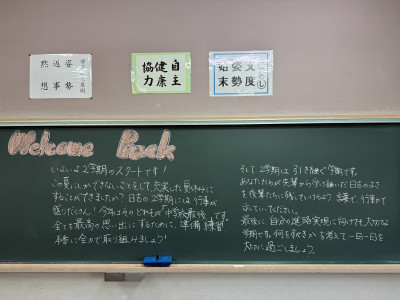 姿勢
返事
黙想
自主
健康
協力
支度
姿勢
始末
Welcome Back
いよいよ2学期のスタートです！
この夏にしかできないことをして、充実した夏休みに
することができましたか？日台の2学期には行事が
盛りだくさん！今年はそのどれもが「中学校最後」です。
全てを最高の思い出にするために、準備、練習
本番に全力で取り組みましょう！
そして2学期は引き継ぐ学期です。
あなたたちが先輩から受け継いだ日台のよさ
を後輩たちに残していけるよう 言葉で、行動で
示していってください。
最後に、自分の進路実現に向けても大切な
学期です。何をすべきかを考えて一日一日を
大切に過ごしましょう。